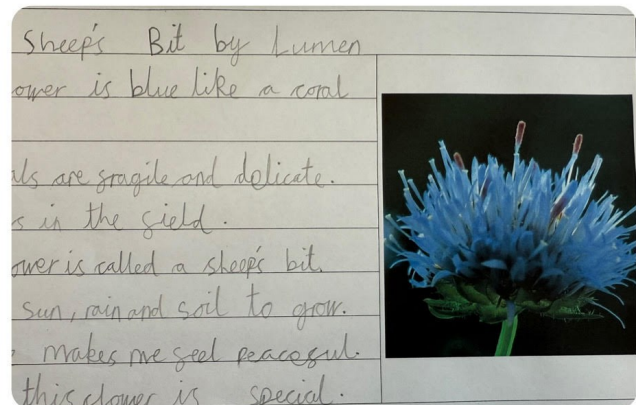 Sheep's Bit by Lumen
ower is blue like a coral
als are fragile and delicate.
s in the field.
ower is called a sheep's bit.
sun, rain and soil to grow.
makes me feel peaceful.
this flower is special.